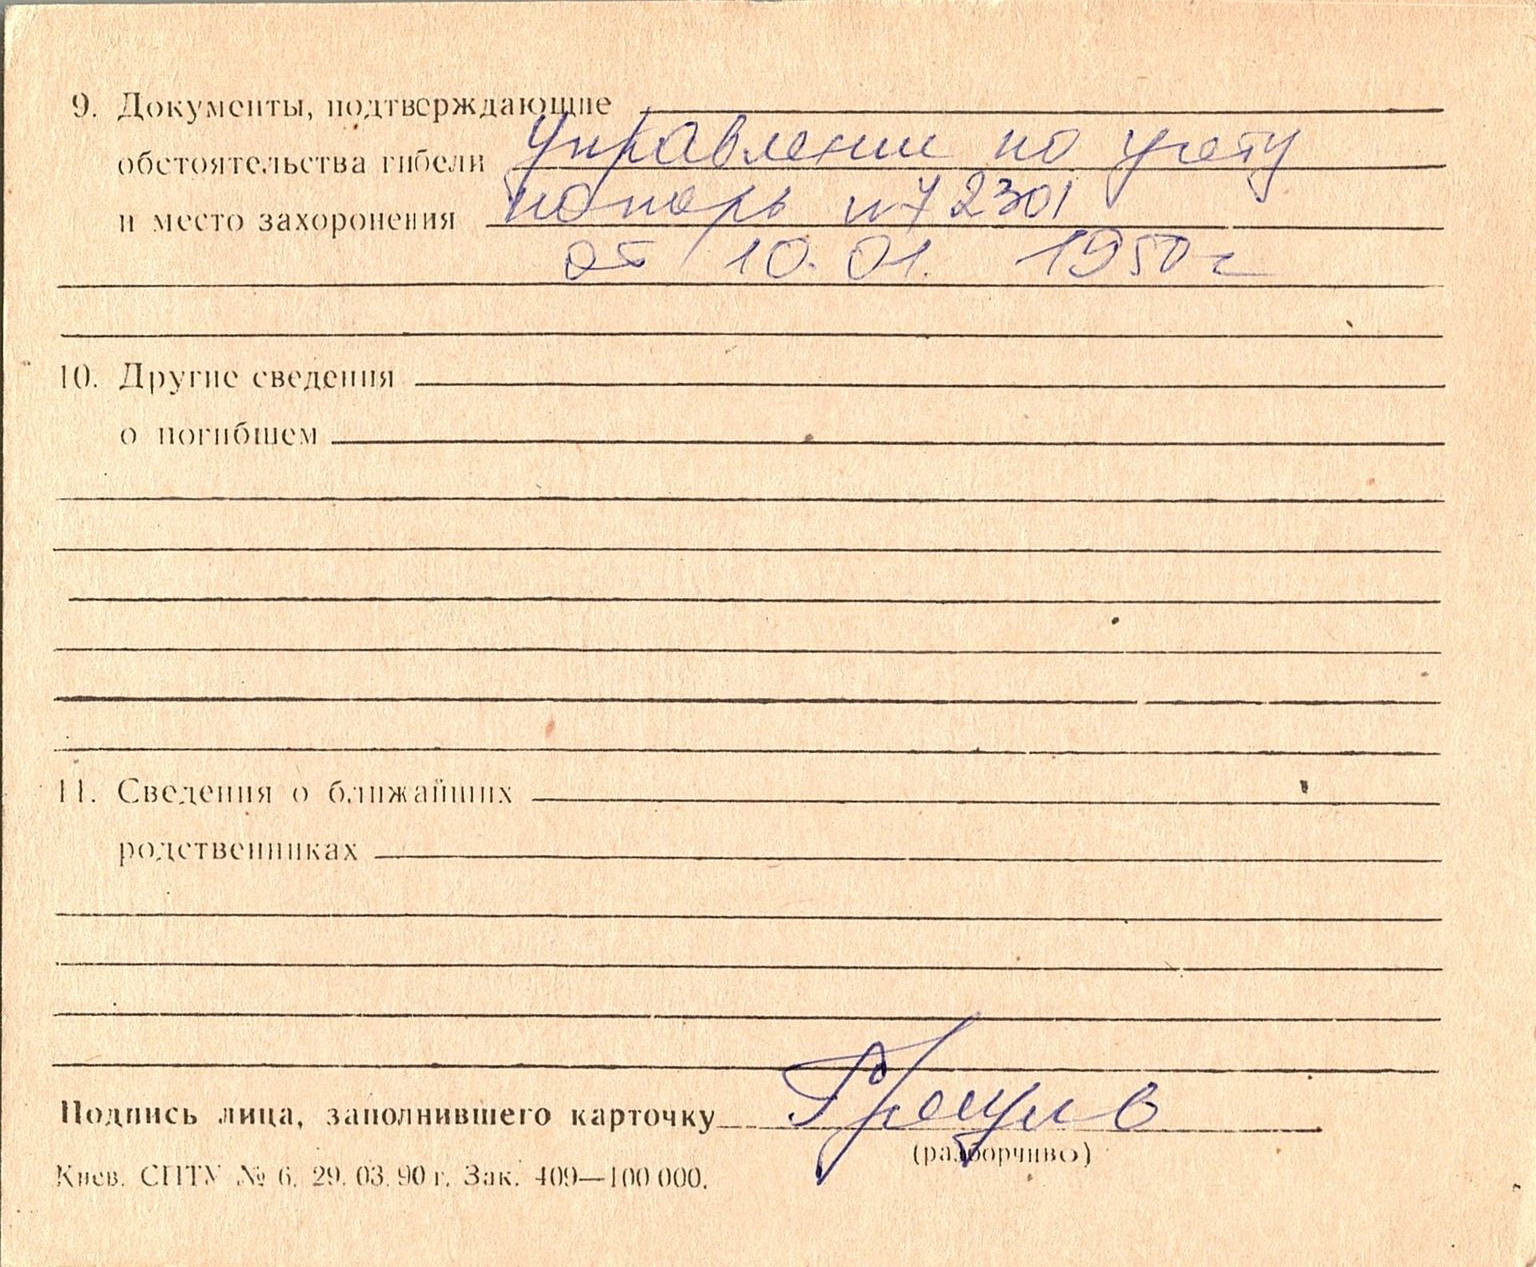 9. Документы, подтверждающие
обстоятельства гибели Управление по учету
и место захоронения потерь 72301
от 10.01. 1950 г
10. Другие сведения
о погибшем
11. Сведения о ближайших
родственниках
Подпись лица, заполнившего карточку
(разборчиво)
Киев. СПТУ № 6. 29. 03. 90 г. Зак. 409—100 000.